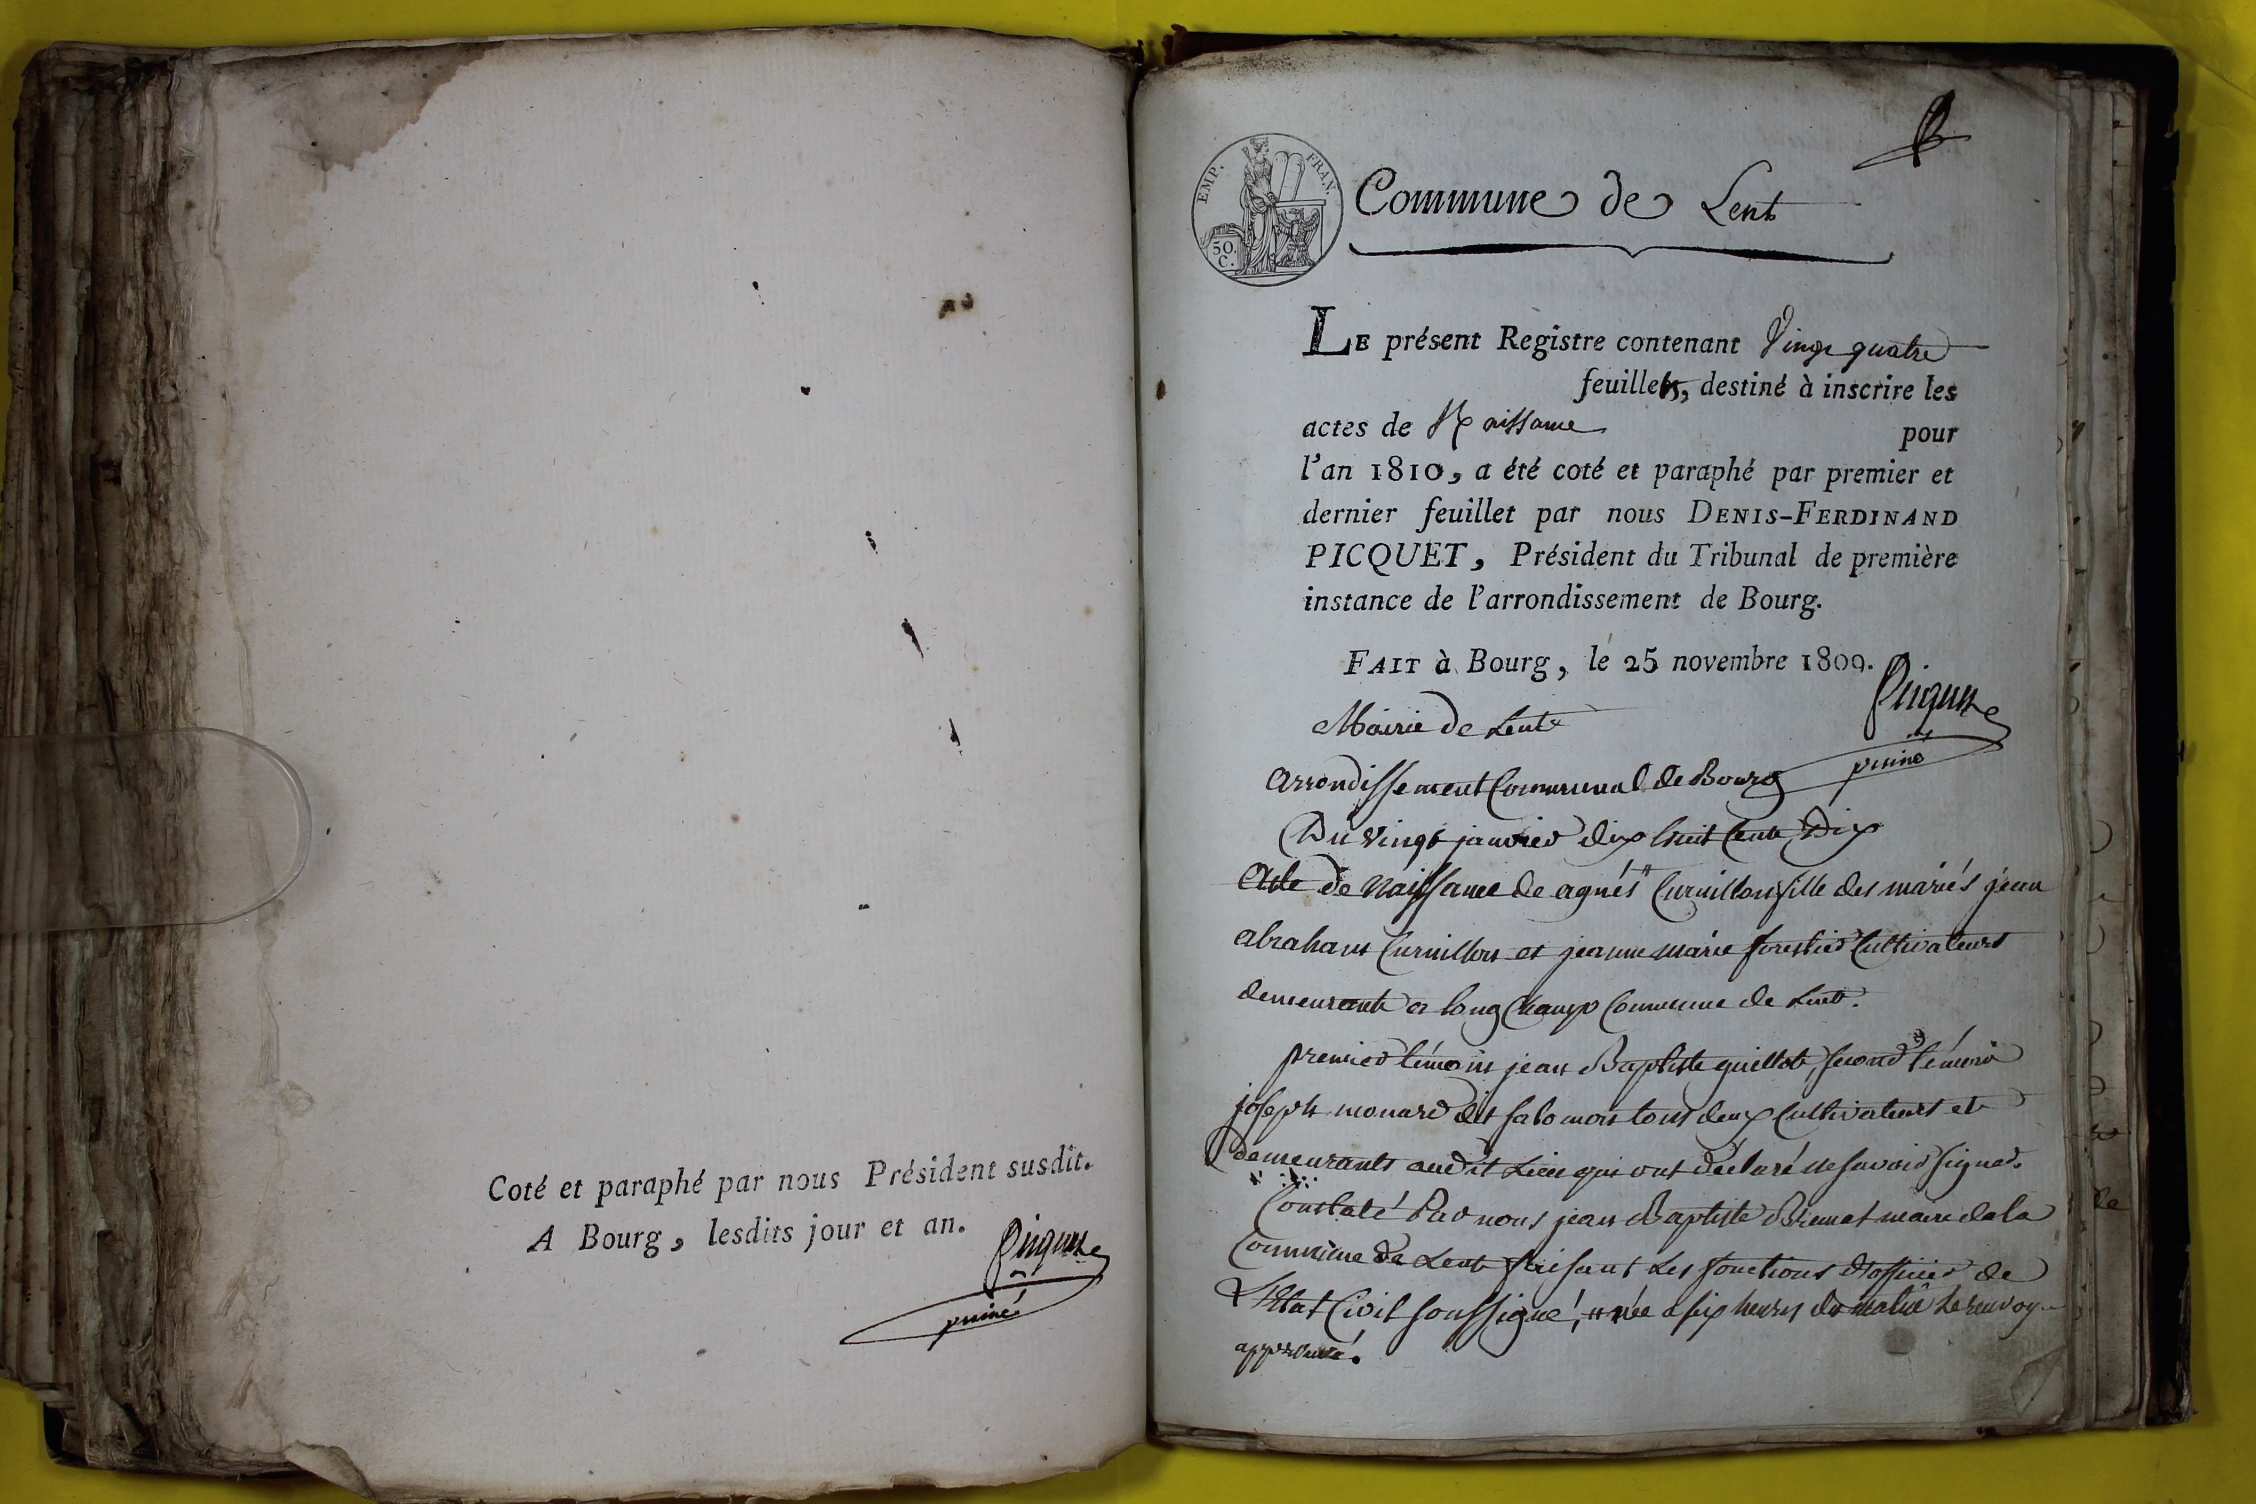 Coté et paraphé par nous Président susdit.
A Bourg, lesdits jour et an.
Picquet
EMP. FRAN.
50. C.
Commune de Lent
LE présent Registre contenant Vingt quatre
feuillets, destiné à inscrire les
actes de Naissance pour
l'an 1810, a été coté et paraphé par premier et
dernier feuillet par nous DENIS-FERDINAND
PICQUET, Président du Tribunal de première
instance de l'arrondissement de Bourg.
FAIT à Bourg, le 25 novembre 1809.
Picquet
Mairie de Lent
arrondissement Communal de Bourg
Du vingt janvier dix huit Cent Dix
Acte de Naissance de agnés " Curnillon fille des mariés jean
abraham Curnillon et jeanne marie forestier Cultivateurs
demeurants a long Champ Commune de Lent.
premier témoin jean Baptiste guillot, second témoin
joseph monard dit salomon tous deux Cultivateurs et
demeurants audit Lieu qui ont déclaré ne savoir signer.
Constaté Par nous jean Baptiste maire de la
Commune de Lent faisant Les fonctions d'officier de
L'Etat Civil soussigné, " née a six heures du matin Le renvoy
approuvé.